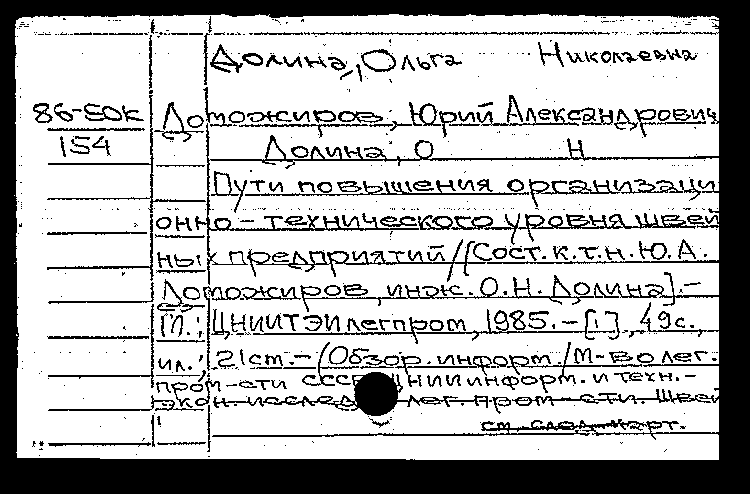 Долина, Ольга Николаевна
86-50К Доможиров, Юрий Александрович
154 Долина, О Н
Пути повышения организаци
онно-технического уровня швей
ных предприятий/[Сост. к.т.н. Ю.А.
Доможиров, инж. О.Н. Долина].-
М.: ЦНИИТЭИлегпром, 1985.-[1], 49с.,
ил.; 21см.-/Обзор. информ./М-во лег.
пром-сти СССР ЦНИИинформ. и техн.-
экон. исслед. лег. пром-сти. Швей
см. след. карт.